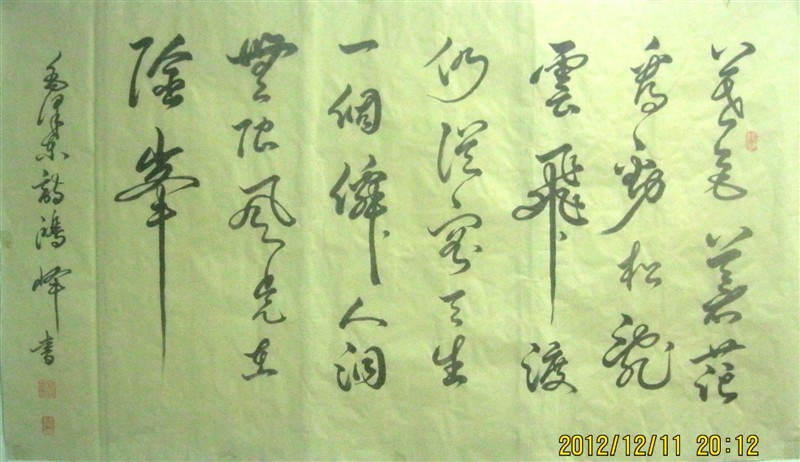 暮色蒼茫
看勁松亂
雲飛渡
仍從容天生
一個僊人洞
無限風光在
險峯
毛澤東詩鴻書
2012/12/11 20:12